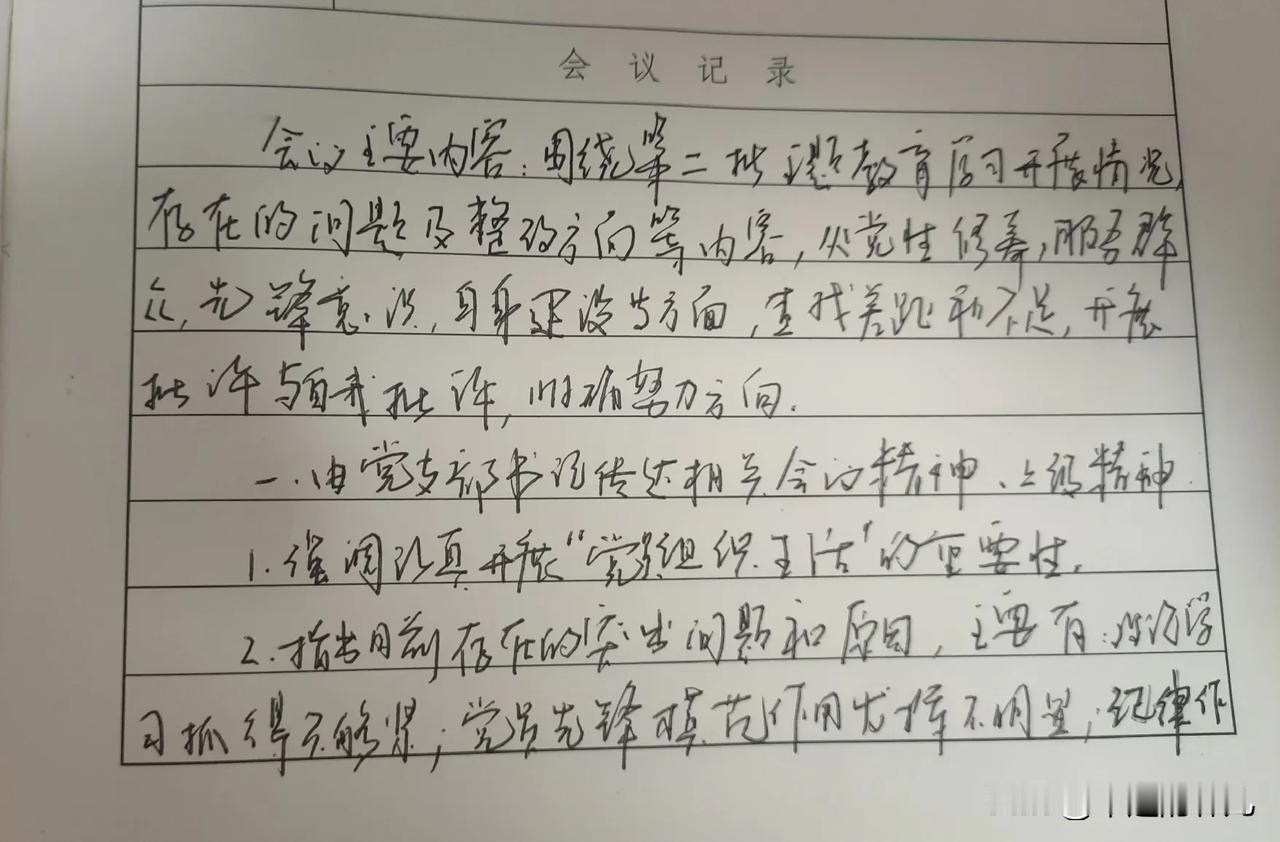 会议记录
会议主要内容：围绕第二批主题教育学习开展情况，
存在的问题及整改方向等内容，从党性修养，服务群
众，先锋意识，自身建设等方面，查找差距和不足，开展
批评与自我批评，明确努力方向.
一.由党支部书记传达相关会议精神、上级精神.
1.强调认真开展“党员组织生活”的重要性.
2.指出目前存在的突出问题和原因，主要有：政治学
习抓得不够紧；党员先锋模范作用发挥不明显；纪律作